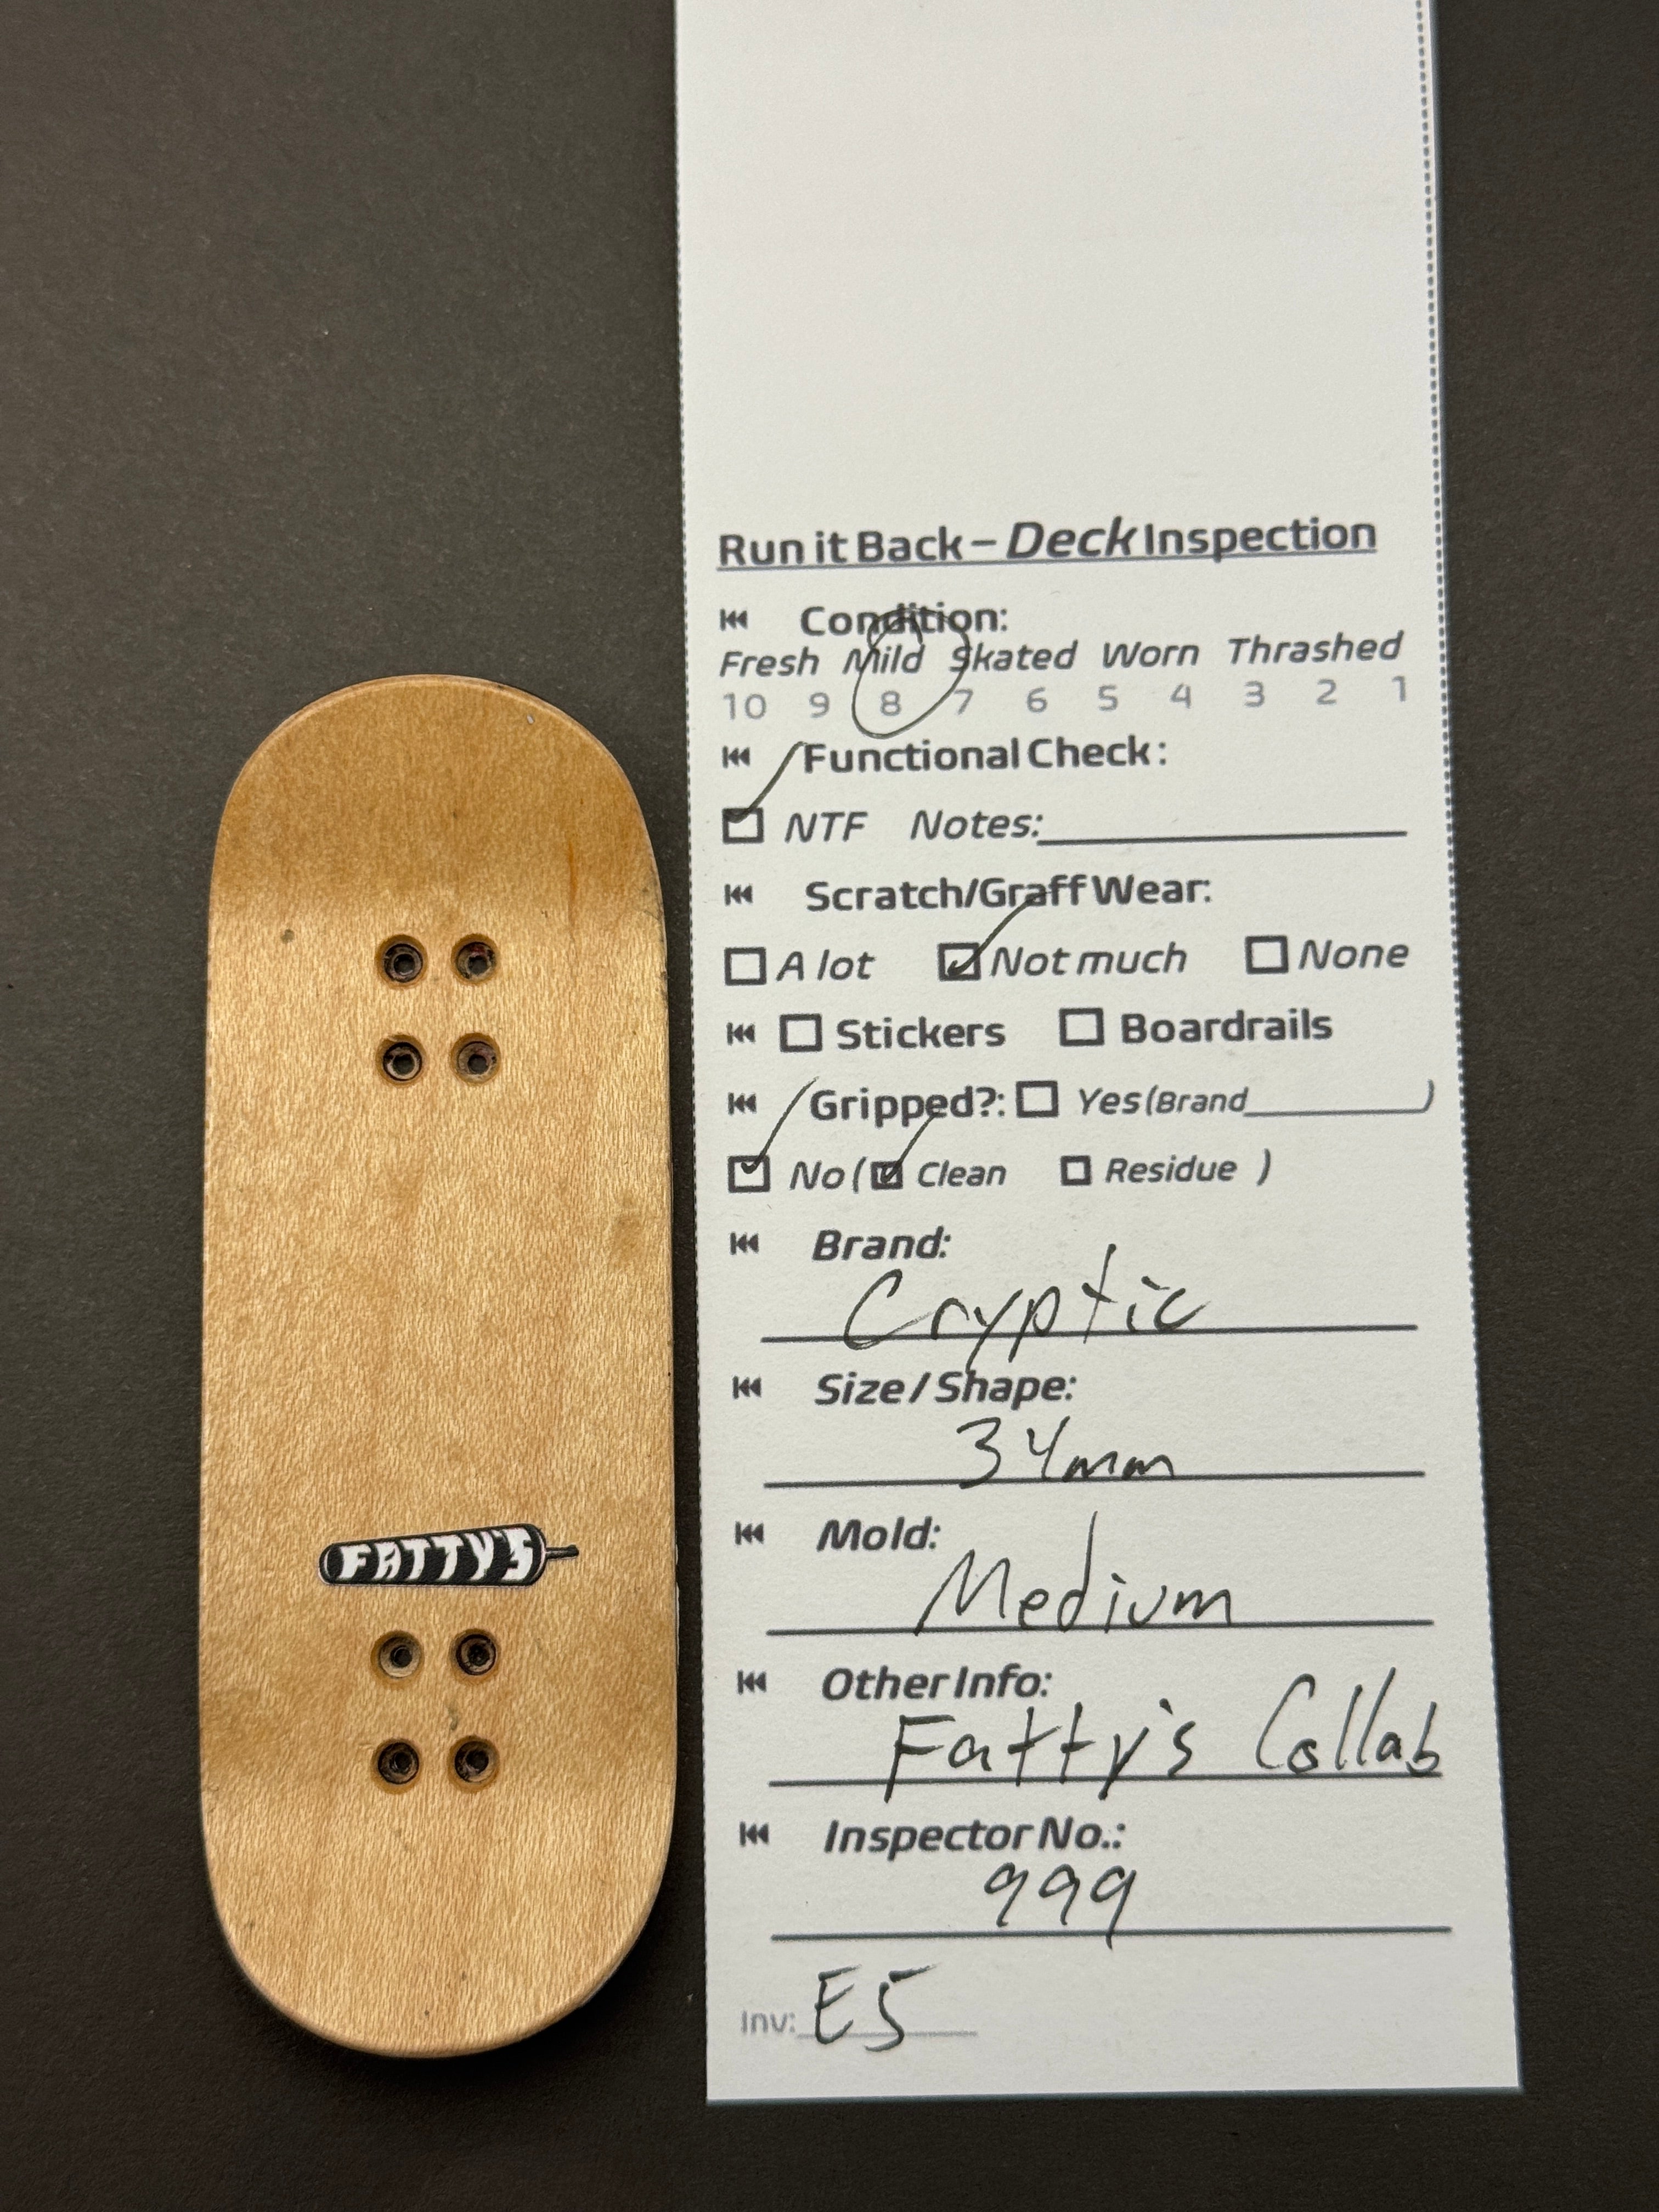 Run it Back – Deck Inspection
Condition:
Fresh Mild Skated Worn Thrashed
10 9 8 7 6 5 4 3 2 1
Functional Check:
NTF Notes:
Scratch/Graff Wear:
A lot Not much None
Stickers Boardrails
Gripped?: Yes (Brand )
No ( Clean Residue )
Brand:
Cryptic
Size / Shape:
34mm
Mold:
Medium
Other Info:
Fatty's Collab
Inspector No.:
999
Inv: E5
FATTY'S